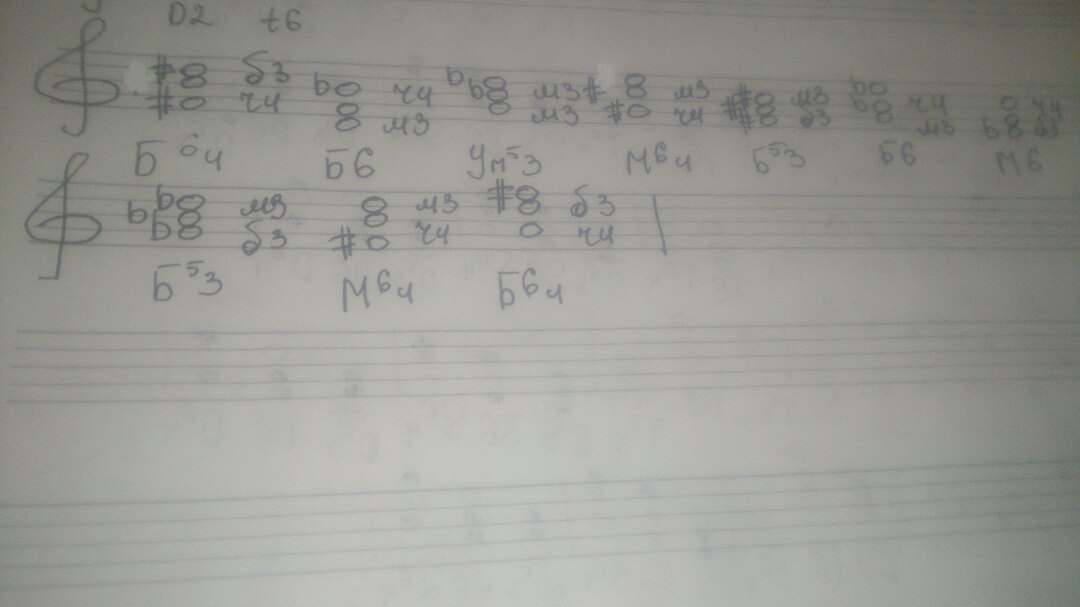 D2 t6
б3 ч4 м3 м3 м3 м3
ч4 м3 м3 ч4 б3 ч4 ч4 б3
Б64 Б6 Ум53 М64 Б53 Б6 М6
м3 м3 б3
б3 ч4 ч4
Б53 М64 Б64